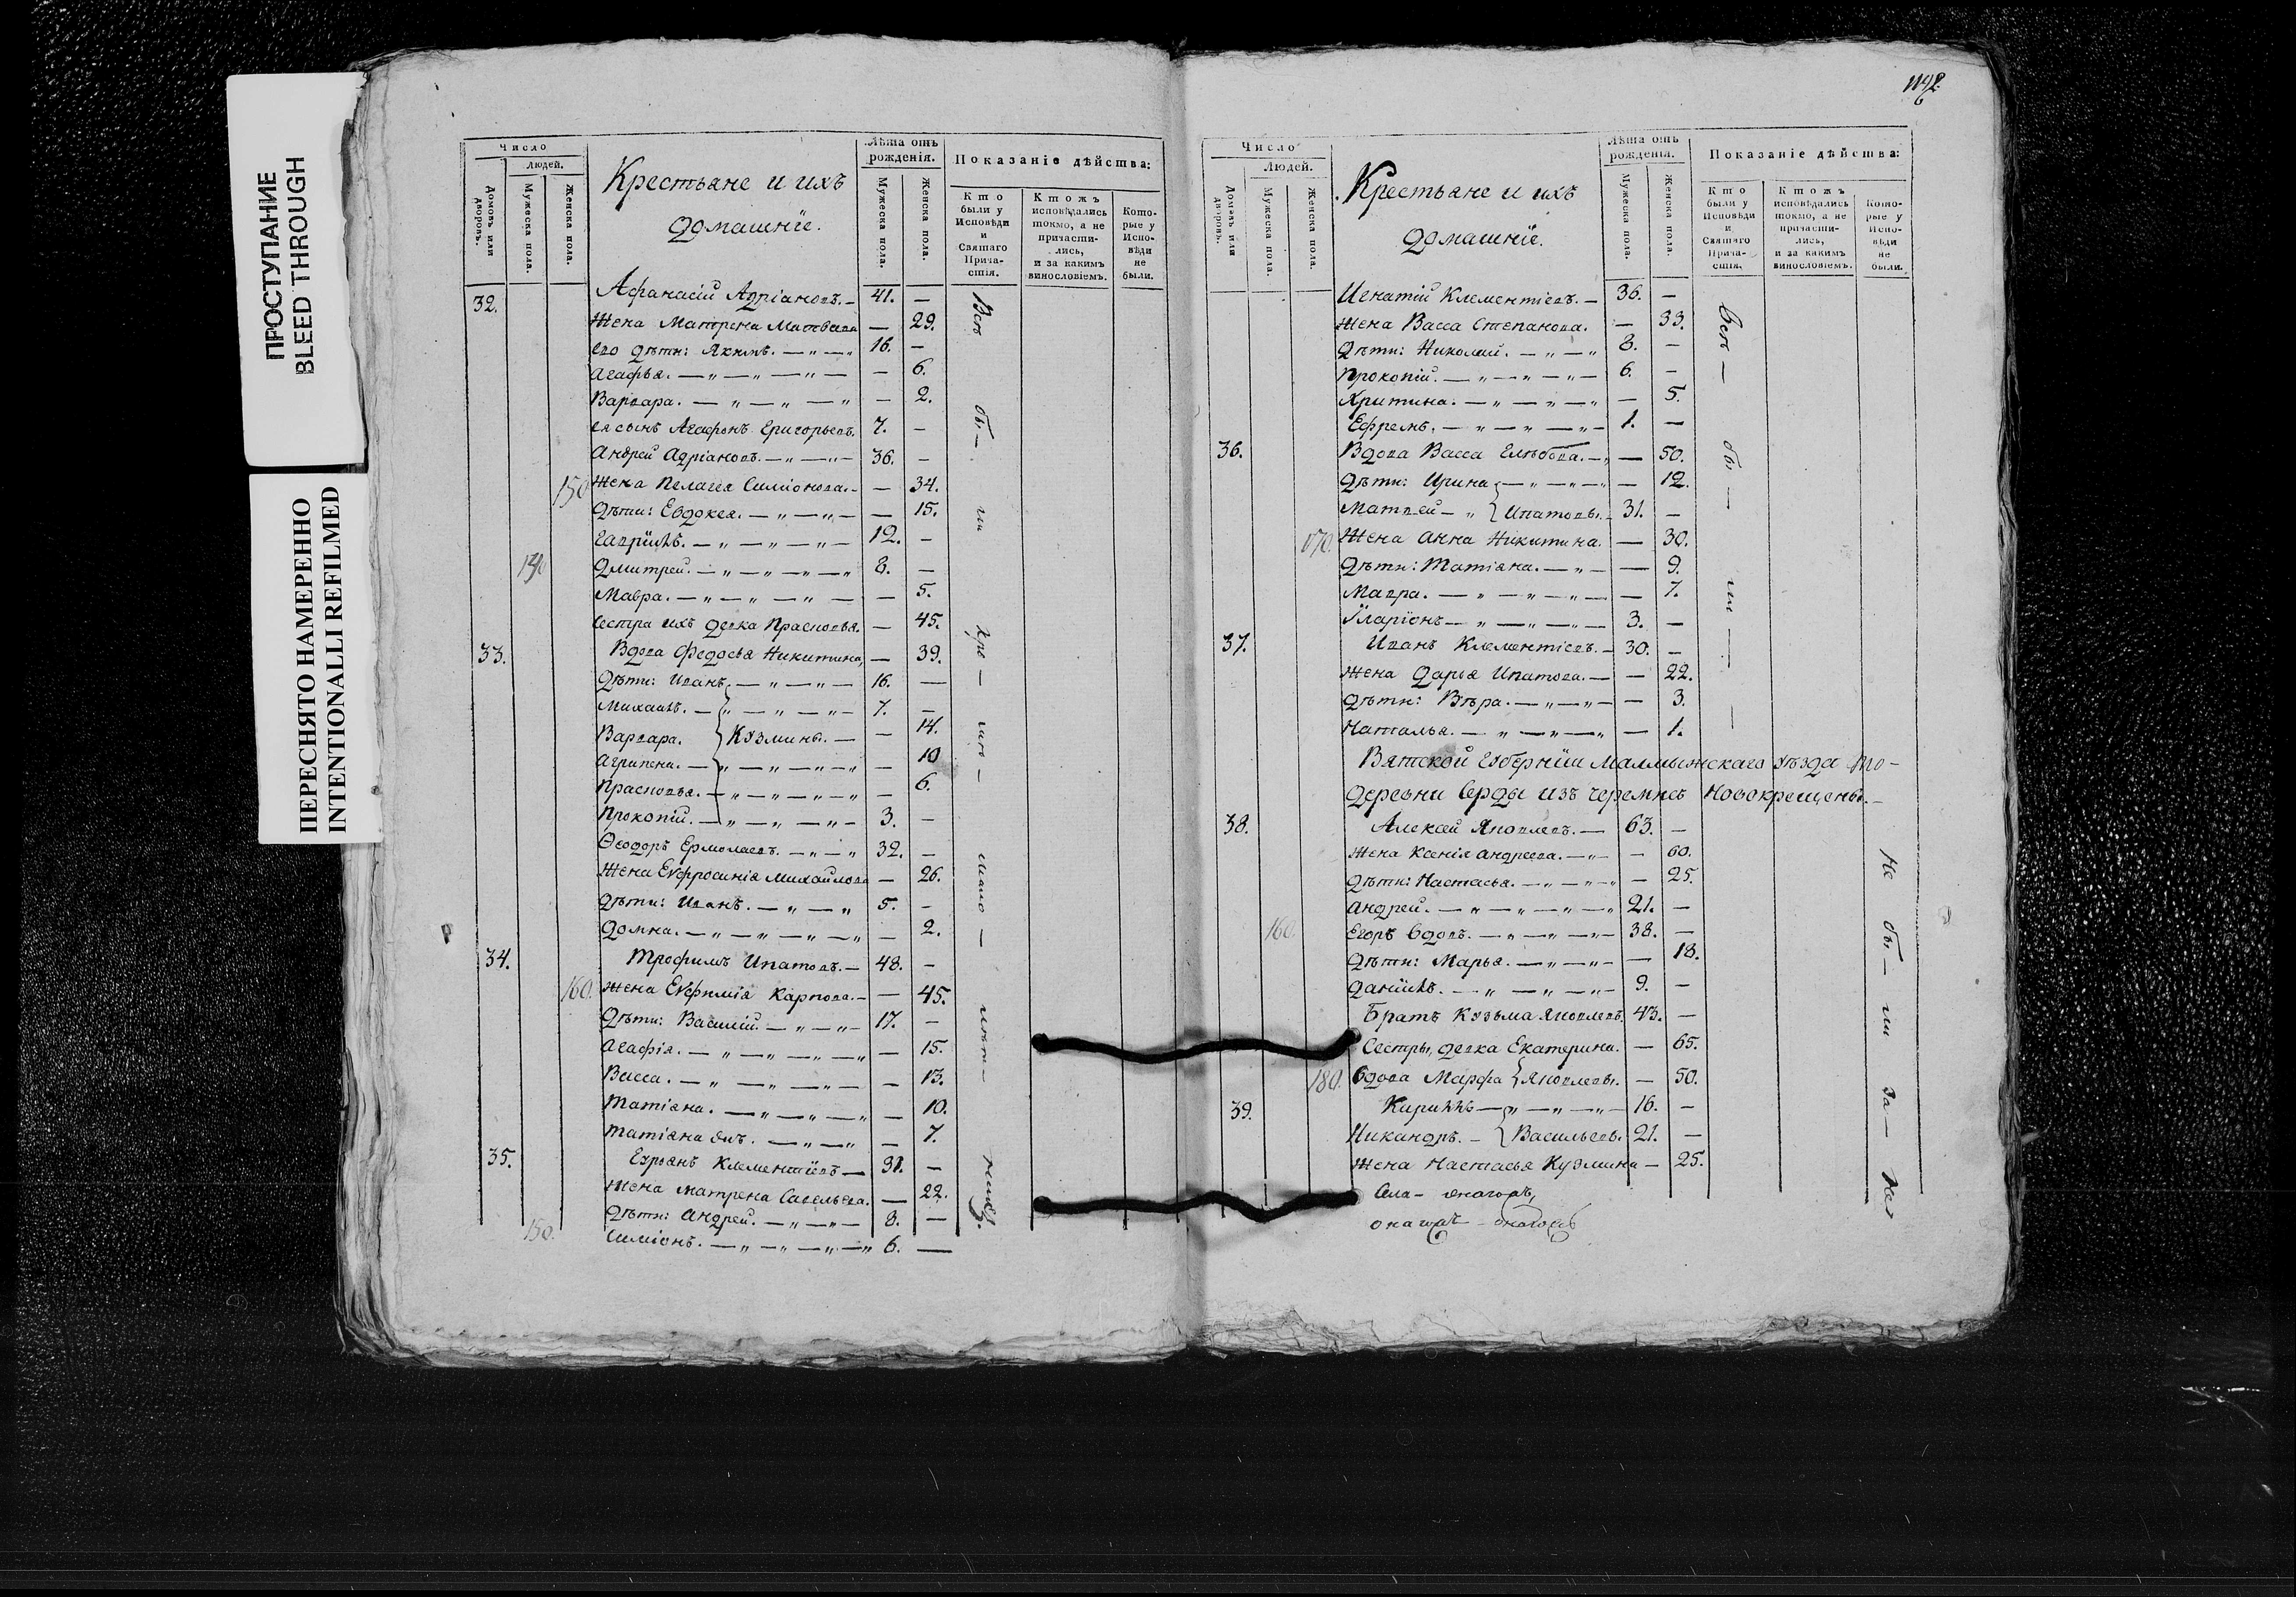 ПРОСТУПАНИЕ
BLEED THROUGH
ПЕРЕСНЯТО НАМЕРЕННО
INTENTIONALLI REFILMED
Число
Людей.
Домовъ или дворовъ.
Мужеска пола.
Женска пола.
Крестьяне и ихъ
домашніе.
Лѣта отъ рожденія.
Мужеска пола.
Женска пола.
Показаніе дѣйства:
Кто были у Исповѣди и Святаго Прича-стія.
Ктожъ исповѣдались токмо, а не причасти-лись, и за какимъ винословіемъ.
Кото-рые у Испо-вѣди не были.
32. Афанасій Адріановъ. — 41. —
Жена Матрена Матвеева — 29.
его дѣти: Якимъ. — 16. —
Агафья. — 6.
Варвара. — 2.
ея сынъ Агафонъ Григорьевъ. 7. —
Андрей Адріановъ. — 36. —
150 Жена Пелагея Симіонова. — 34.
Дѣти: Евдокея. — 15.
Гавріилъ. — 12. —
140 Дмитрей. — 8. —
Мавра. — 5.
Сестра ихъ девка Прасковья. — 45.
33. Вдова Федосья Никитина, — 39.
Дѣти: Иванъ. — 16. —
Михаилъ. — 7. —
Варвара. } Кузмины. — 14.
Агрипена. — 10
Прасковья. — 6.
Прокопій. — 3. —
Ѳеодоръ Ермолаевъ. — 32. —
Жена Евфросинія Михайлова — 26.
Дѣти: Иванъ. — 5. —
Домна. — 2.
34. Трофимъ Ипатовъ. — 48. —
160. Жена Евфимія Карпова. — 45.
Дѣти: Василій. — 17. —
Агафія. — 15.
Васса. — 13.
Татіана. — 10.
Татіана — 7.
35. Клементіевъ — 31. —
Жена Матрена Савельева. — 22.
Дѣти: Андрей. — 8. —
150. Симіонъ. — 6. —
Всѣ бы — ли
1142
6
Число
Людей.
Домовъ или дворовъ.
Мужеска пола.
Женска пола.
Крестьяне и ихъ
домашніе.
Лѣта отъ рожденія.
Мужеска пола.
Женска пола.
Показаніе дѣйства:
Кто были у Исповѣди и Святаго Прича-стія.
Ктожъ исповѣдались токмо, а не причасти-лись, и за какимъ винословіемъ.
Кото-рые у Испо-вѣди не были.
Игнатій Клементіевъ. — 36. —
Жена Васса Степанова. — 33.
Дѣти: Николай. — 8. —
Прокопій. — 6. —
Хритина. — 5.
Ефремъ. — 1. —
36. Вдова Васса Глѣбова. — 50.
Дѣти: Ирина — 12.
Матвей — } Ипатовы. 31. —
170. Жена Анна Никитина. — 30.
Дѣти: Татіана. — 9.
Мавра. — 7.
Иларіонъ — 3. —
37. Иванъ Клементіевъ. — 30. —
Жена Дарья Ипатова. — 22.
Дѣти: Вѣра. — 3.
Наталья. — 1.
Всѣ — бы — ли
Вятской Губерніи Малмыжскаго уѣзда
деревни Серды изъ черемисъ Новокрещены. —
38. Алексей Яковлевъ. — 63. —
Жена Ксенія Андреева. — 60.
Дѣти: Настасья. — 25.
Андрей. — 21. —
160. Егоръ вдовъ. — 38. —
Дѣти: Марья. — 18.
Даніилъ. — 9. —
Братъ Кузьма Яковлевъ. 43. —
Сестры, девка Екатерина. — 65.
180. вдова Марфа } Яковлевы. — 50.
39. Кириллъ — 16. —
Никандръ. — } Васильевы. 21. —
Жена Настасья Кузмина — 25.
Не бы — ли за —